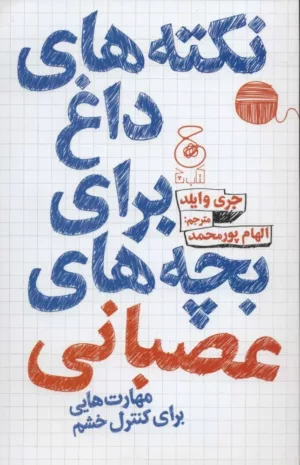 نکته‌های
داغ
برای
بچه‌های
عصبانی
جری وایلد
مترجم:
الهام پورمحمد
مهارت‌هایی
برای کنترل خشم